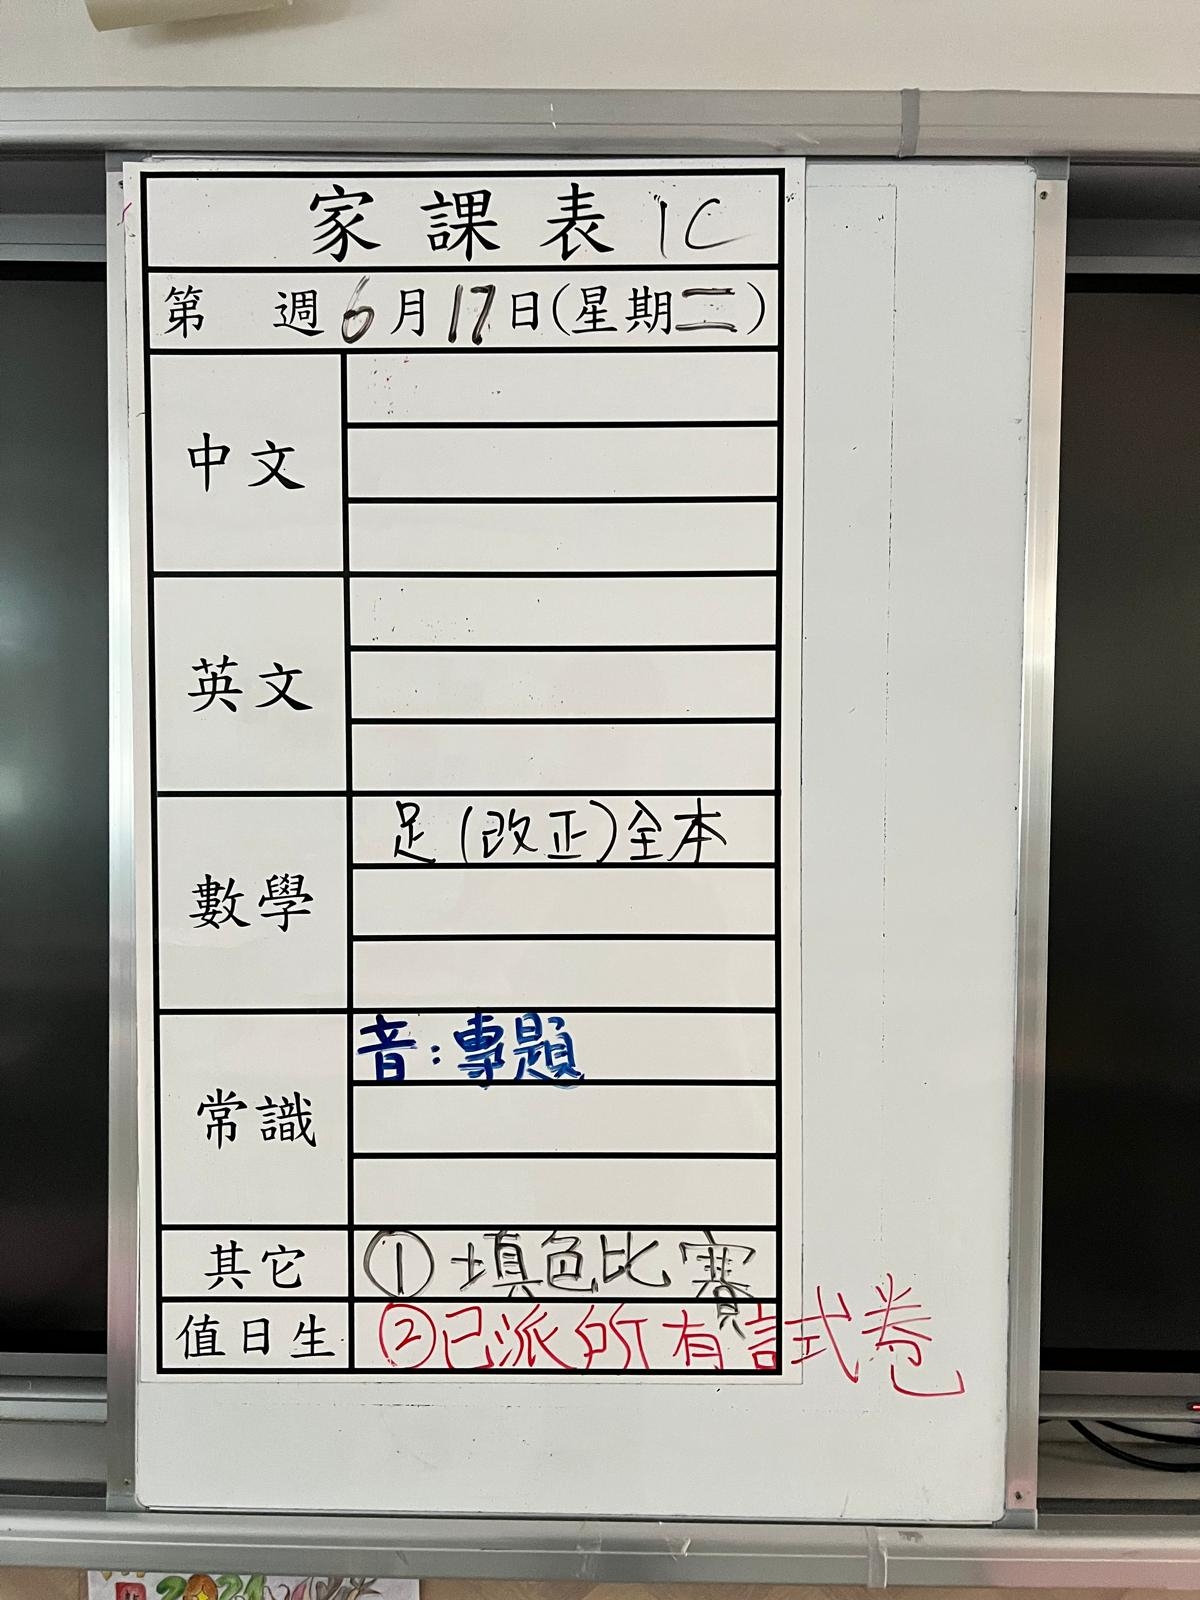 家課表 1C
第 週 6月17日(星期二)
中文
英文
數學
足(改正)全本
常識
音:專題
其它
①填色比賽
值日生
②已派所有試卷
2024